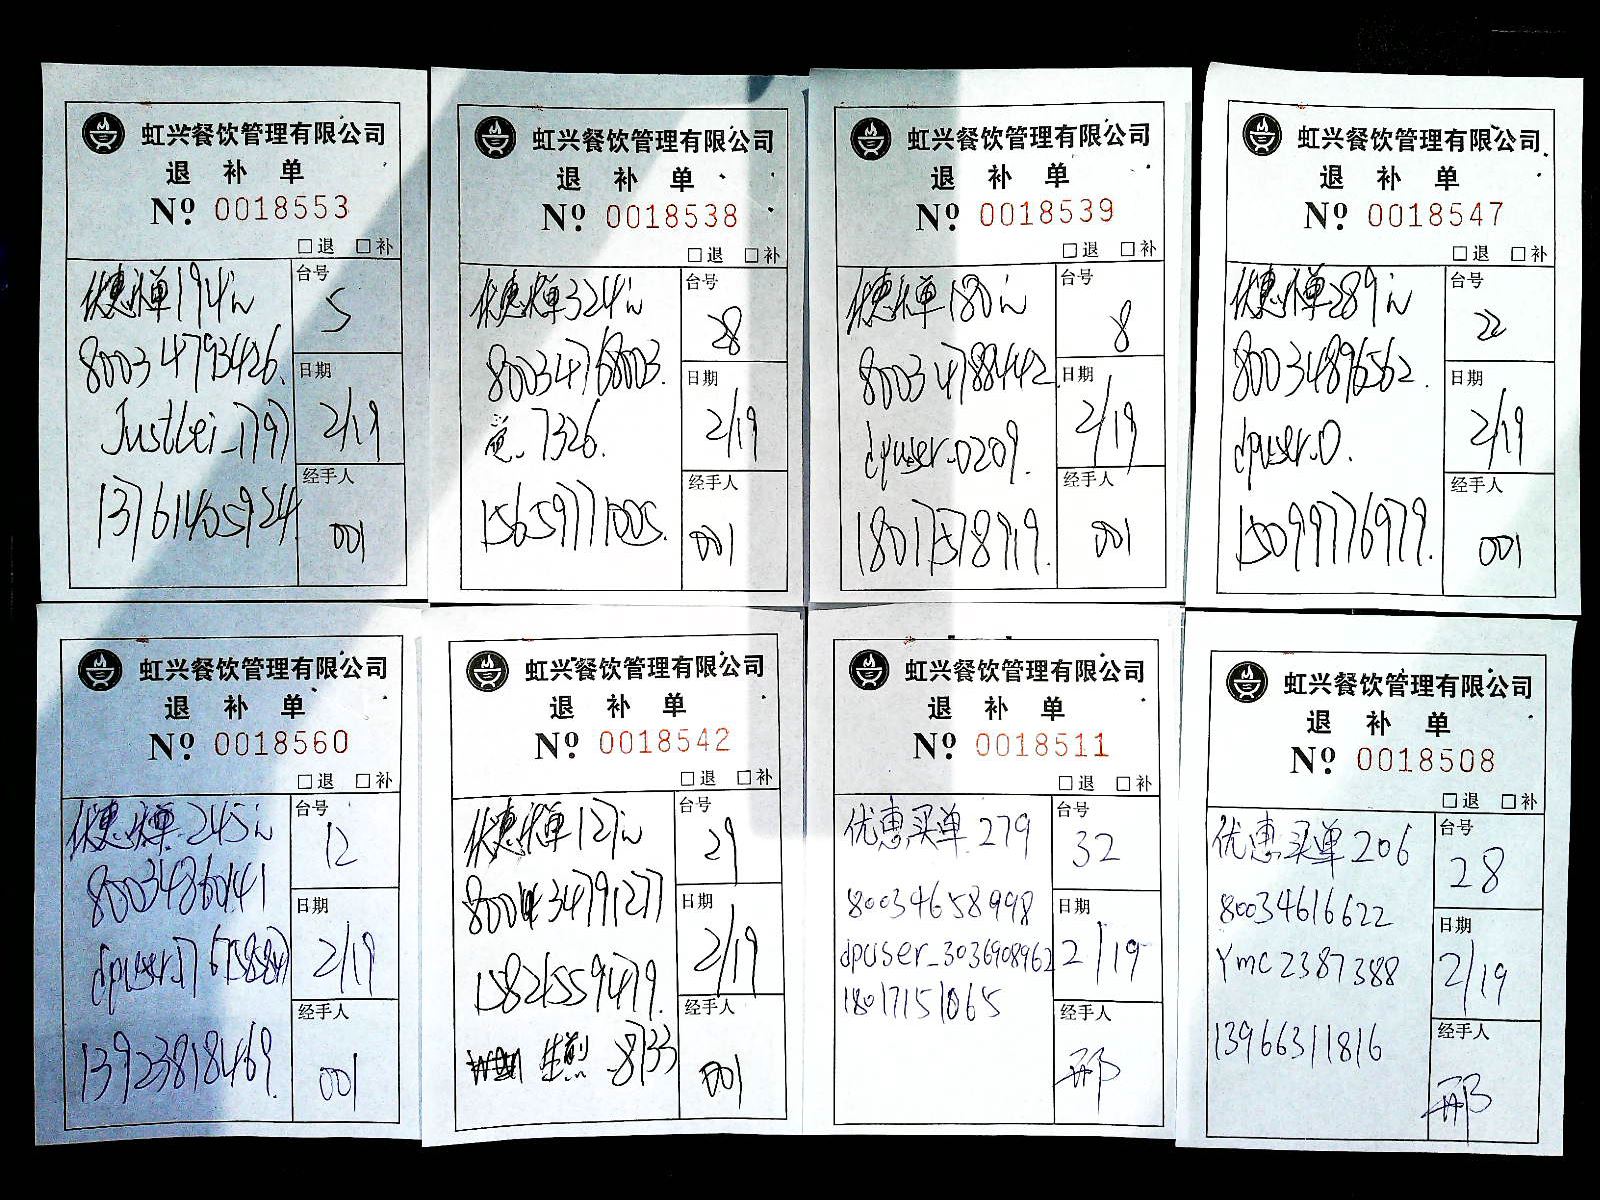 虹兴餐饮管理有限公司
退 补 单
Nº 0018553
□退 □补
优惠买单194元
台号
5
80034793426.
日期
2/19
JustLei_1797
经手人
001
13761405924
虹兴餐饮管理有限公司
退 补 单
Nº 0018538
□退 □补
优惠买单324元
台号
28
80034768003.
日期
2/19
7326.
经手人
001
15659771005.
虹兴餐饮管理有限公司
退 补 单
Nº 0018539
□退 □补
优惠买单180元
台号
8
80034788442
日期
2/19
dpuser_0209.
经手人
001
18017578919.
虹兴餐饮管理有限公司
退 补 单
Nº 0018547
□退 □补
优惠买单289元
台号
22
80034896562.
日期
2/19
dpuser_0.
经手人
001
15099776979.
虹兴餐饮管理有限公司
退 补 单
Nº 0018560
□退 □补
优惠买单245元
台号
12
80034860141
日期
2/19
经手人
001
13923818469.
虹兴餐饮管理有限公司
退 补 单
Nº 0018542
□退 □补
优惠买单127元
台号
29
日期
2/19
15821559479.
经手人
001
生煎_8133
虹兴餐饮管理有限公司
退 补 单
Nº 0018511
□退 □补
优惠买单279
台号
32
80034658998
日期
2/19
dpuser_3036908962
18017151065
经手人
邢
虹兴餐饮管理有限公司
退 补 单
Nº 0018508
□退 □补
优惠买单206
台号
28
80034616622
日期
2/19
Ymc2387388
经手人
邢
13966311816